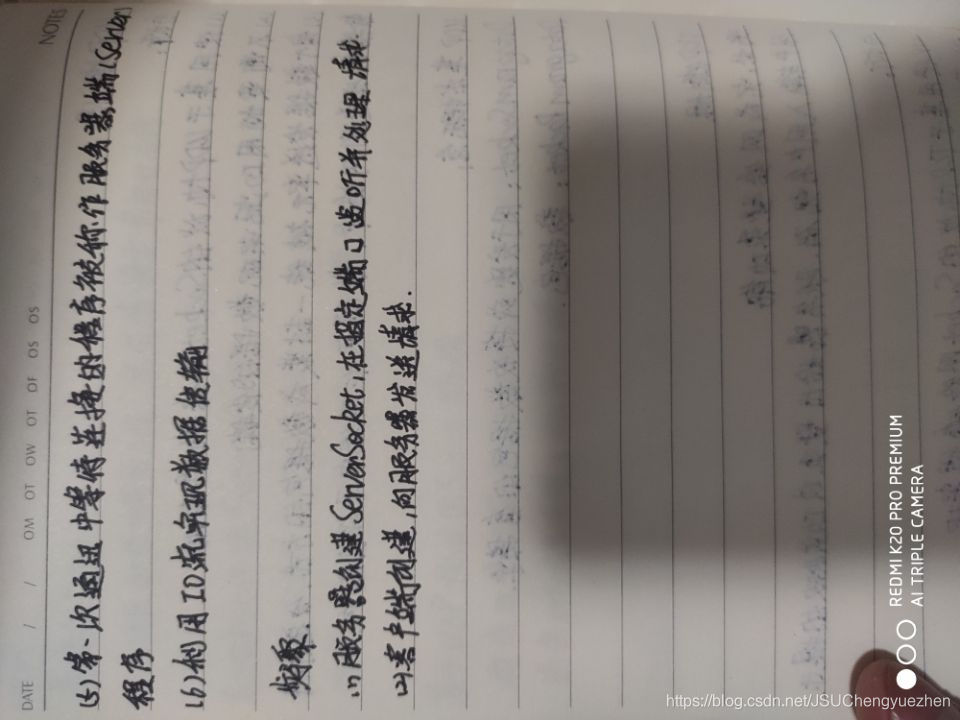 NOTES
DATE / / OM OT OW OT OF OS OS
(5)第一次通迅中等待连接的程序被称作服务器端(Server)
程序
(6)利用IO流实现数据传输
步聚.
(1)服务器创建ServerSocket,在指定端口监听并处理请求.
(2)客户端创建,向服务器发送请求.
REDMI K20 PRO PREMIUM
AI TRIPLE CAMERA
https://blog.csdn.net/JSUChengyuezhen